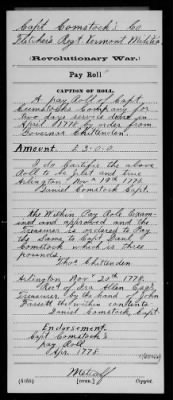 Capt Comstock's Co
Fletcher's Regt Vermont Militia
Revolutionary War.
Pay Roll
CAPTION OF ROLL.
A pay Roll of Capt
Comstocks Company for
two days service done in
April 1778 by order from
Governor Chittenden.
Amount £3-0-0.
I do Certifie the above
Roll to be just and true
Arlington Nov 19th 1778
Daniel Comstock Capt.
The Within Pay Role Exam-
ined and approved and the
Treasurer is ordered to Pay
the Same to Capt Danl
Comstock which is three
pounds
Thos Chittenden
Arlington Nov 20th 1778.
Rec'd of Ira Allen Esqr
Treasurer by the hand of John
Fassett the within contents
Daniel Comstock Capt.
Endorsement.
Capt Comstock's
pay Roll
Apr. 1778.
Metcalf
Copyist.